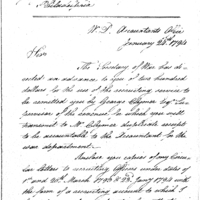 Philadelphia
W. D. Accountants Office
January 25th 1794
Sir
The Secretary of War has di-
rected an advance to you of two hundred
dollars for the use of the recruiting service to
be remitted you by George Clymer Esq. Su-
pervisor of the revenue, for which you will
transmit to Mr. Clymer duplicate receipts
to be accountable to the Accountant to the
war department.
Enclosed you receive of my Circu-
lar letters to recruiting Officers under date of
1st and 20th March 1793 & 22d Jany 1794 with
the form of a recruiting account to which I